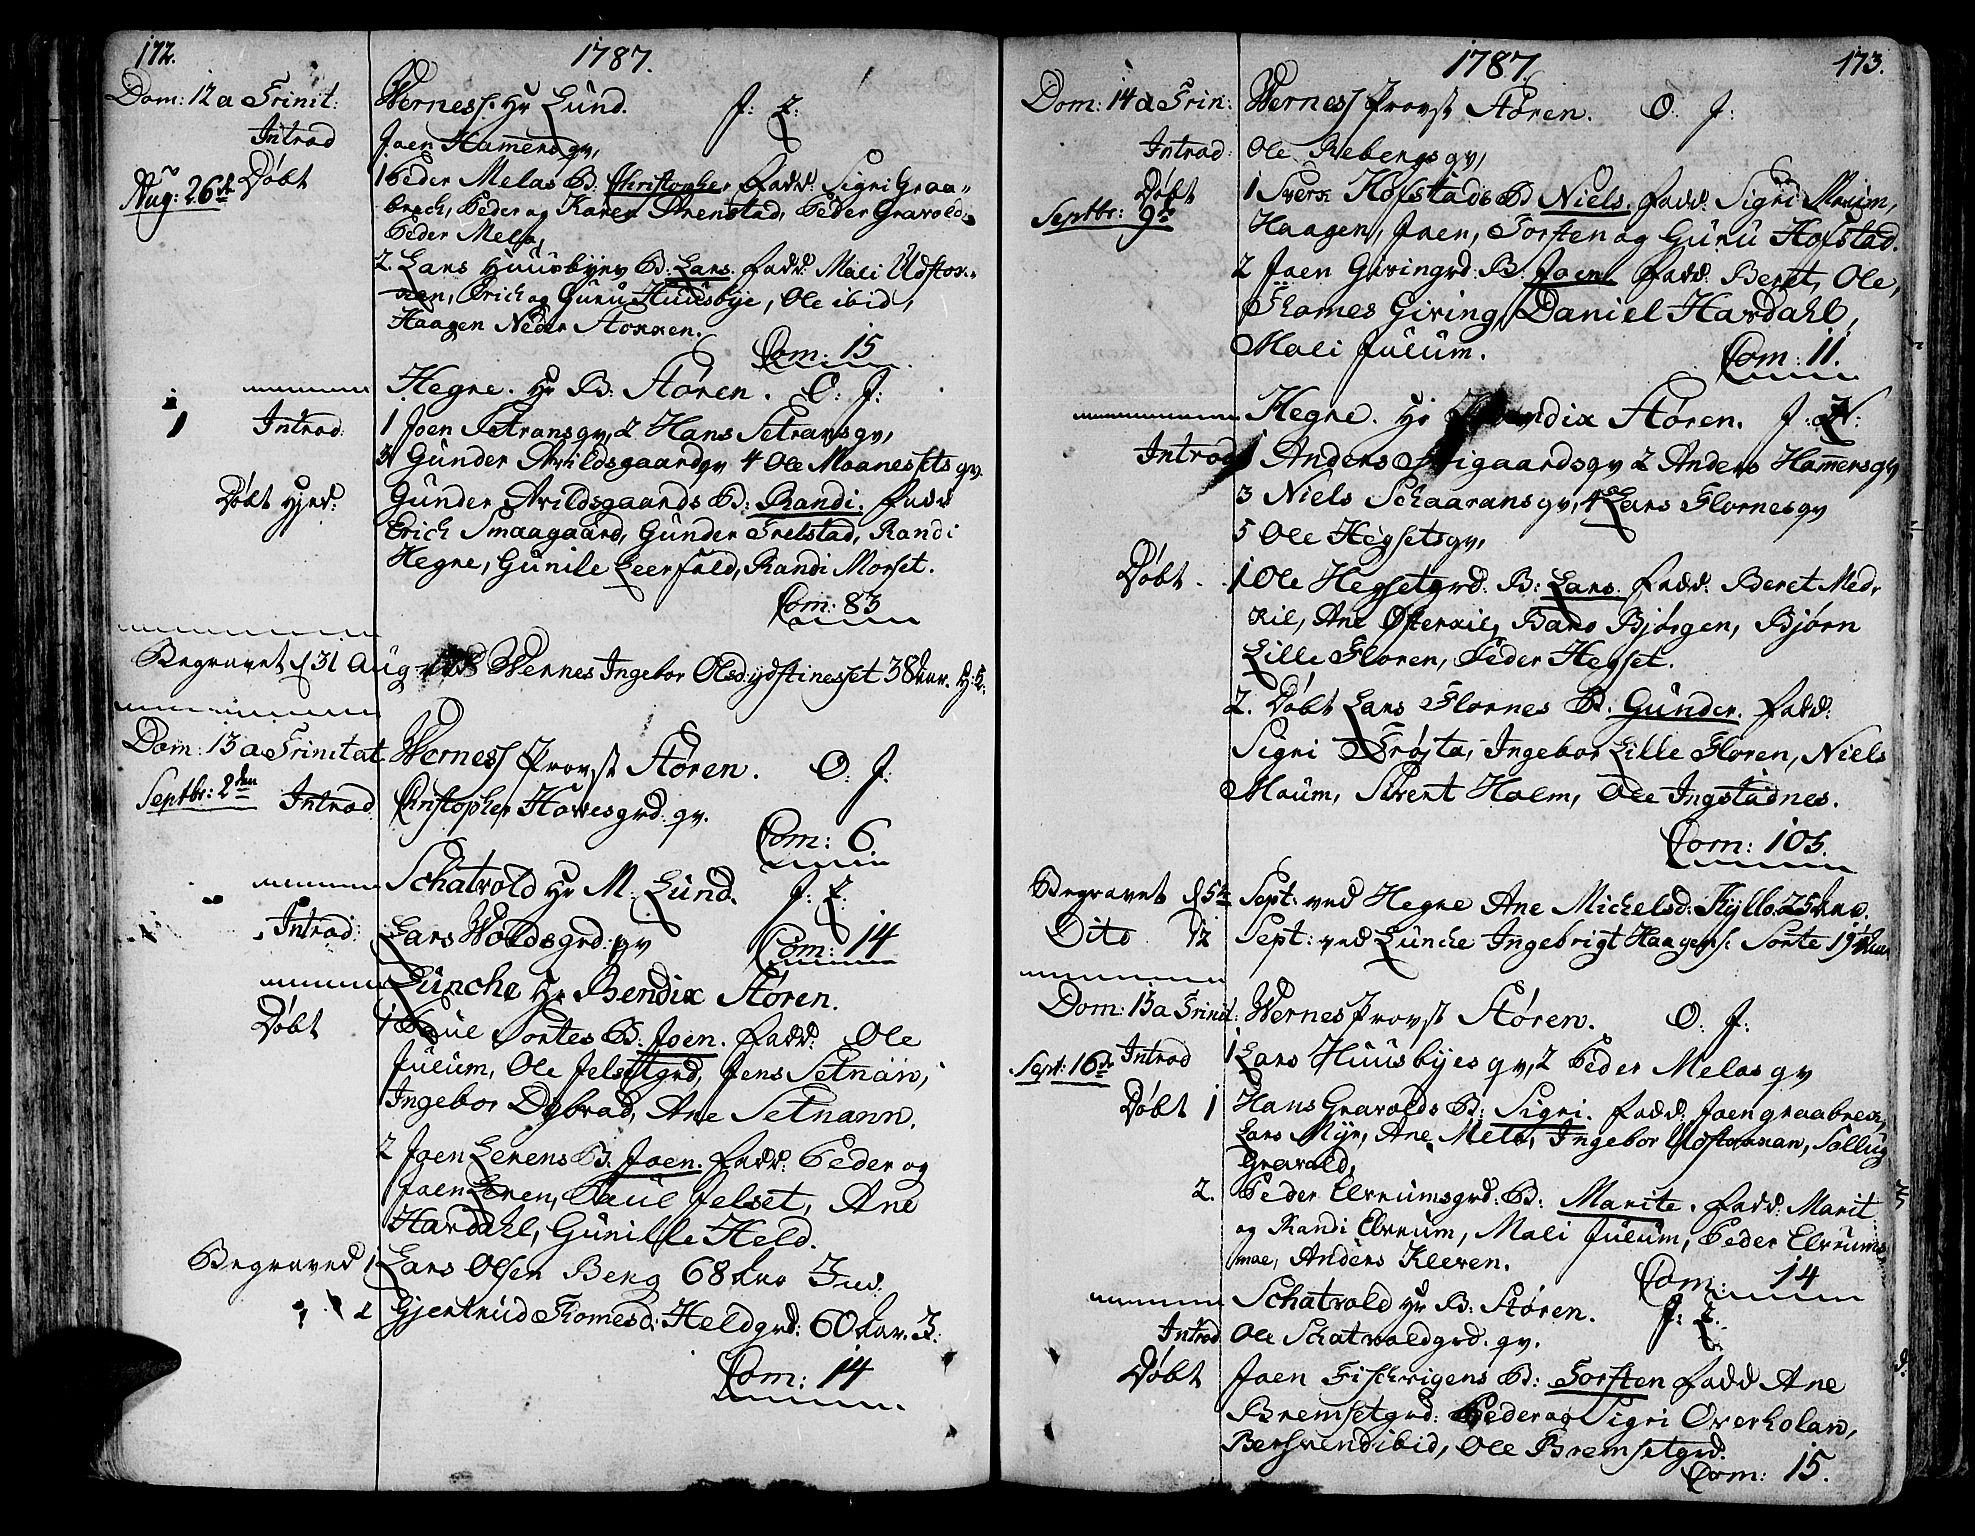 172.
1787.
Dom: 12 a Trinit:
Werness. Hr Lund. J: L:
Introd
Joen Hamers qv,
Aug: 26de
Døbt
1 Peder Melas B: Christopher Fadd: Sigri Graa-
breck, Peder og Karen Arenstad, Peder Gravold,
Peder Mela,
2. Lars Huusbyes B: Lars. Fadd: Mali Udstor-
Erich og Guru Huusbye, Ole ibid,
Haagen Neder Storren.
Com: 15.
Hegre. Hr B: Støren. O: J:
Introd:
1 Joen Setrans qv, 2 Hans Setrans qv,
3 Gunder Arildsgaard qv 4 Ole Moanessets qv.
Døbt Hjed:
Gunder Arildsgaards B: Randi. Fadd
Erich Smaagaard, Gunder Trelstad, Randi
Hegre, Gunile Leerfald, Randi Morset.
Com: 83
Begravet d 31 Aug Wernes Ingebor Olsd: ydstinesset 38 Aar.
Dom: 13 a Trinitat
Werness Provst Støren. O: J:
Septbr: 2den
Introd
Christopher Horresgrd: qv.
Com: 6.
Schatvold Hr M. Lund. J: L:
Introd:
Lars Woldsgrd: qv
Com: 14
Lünche Hr Bendix Støren.
Døbt
1 Paul Sortes B: Joen. Fadd: Ole
Juleum, Ole Jelsetgrd, Jens Setnan,
Ingebor Dybvad, Ane Setnann.
2 Joen Lerens B: Joen. Fadd: Peder og
Joen Leren, Paul Jelset, Ane
Hardahl, Gunille Held.
Begraved 1
Lars Olsen Berg 68 Aar
2 Gjertrud Thomesd: Heldgrd: 60 Aar.
Com: 14
1787.
173.
Dom: 14 a Trin:
Werness Provst Støren. O. J:
Introd:
Ole Rebergs qv,
Døbt
Septbr: 9de
1 Hofstads B Niels. Fadd: Sigri Moum,
Haagen, Joen, Torsten og Guru Hofstad.
2 Joen Giringrd: B: Joen. Fadd: Beret, Ole,
Thomes Giring, Daniel Hardahl,
Mali Juleum.
Com: 11.
Hegre. Hr Bendix Støren. J:
Introd
1 Anders Stigaards qv 2 Anders Hamers qv,
3 Niels Schaarans qv, 4 Lars Flornes qv
5 Ole Hegsets qv,
Døbt.
1 Ole Hegsetgrd. B: Lars. Fadd: Beret Med-
kil, Ane Østerkil, Baro Bjørgen, Bjørn
Lille Floren, Peder Hegset.
2. Døbt Lars Flornes B: Gunder. Fadd:
Sigri Trøjta, Ingebor Lille Floren, Niels
Moum, Sivert Holm, Ole Ingstadnes.
Com: 103.
Begravet d 5te Sept: ved Hegre Ane Michelsd: Kyllo 25 Aar.
Dito 12 Sept: ved Lünche Ingebrigt Haagens: Sorte 19
Dom: 15 a Trinit:
Wernes Provst Støren. O: J:
Sept: 16de
Introd
1 Lars Huusbyes qv, 2 Peder Melas qv
Døbt 1
Hans Gravolds B: Sigri. Fadd: Joen graabreck,
Lars Myr, Ane Mela, Ingebor
Gravold,
2. Peder Elvrumsgrd: B: Marite. Fadd: Marit
og Randi Elvrum, Mali Juleum, Peder Elvrums-
moe, Anders Kleven.
Com: 14
Schatvold Hr B: Støren. J: L:
Introd
Ole Schatvoldgrd: qv.
Døbt
Joen Fischvigens B: Torsten Fadd Ane
Bremsetgrd: Peder og Sigri Overholan,
Bersvend ibid, Ole Bremsetgrd.
Com: 15.